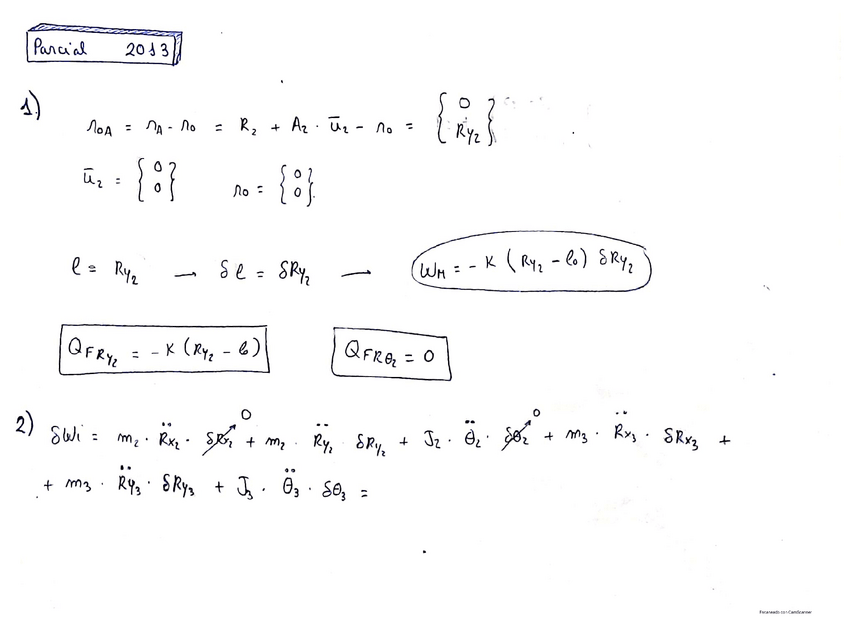 Parcial 2013
1)
r₀A = rA - r₀ = R₂ + A₂ · ū₂ - r₀ = { 0 Ry₂ }
ū₂ = { 0 0 } r₀ = { 0 0 }.
l = Ry₂ → δl = δRy₂ → WM = - K (Ry₂ - l₀) δRy₂
QFRy₂ = - K (Ry₂ - l₀) QFRθ₂ = 0
2) δWi = m₂ · R̈x₂ · δRx₂ 0 + m₂ · R̈y₂ δRy₂ + J₂ · θ̈₂ · δθ₂ 0 + m₃ · R̈x₃ · δRx₃ +
+ m₃ · R̈y₃ · δRy₃ + J₃ · θ̈₃ · δθ₃ =
Escaneado con CamScanner